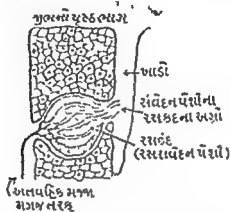 જીભનો પૃષ્ઠ ભાગ
ખાડો
સંવેદન પેશીના
રસકંદના અગ્રો
રસકંદ
(રસસંવેદન પેશી)
મજ્જા
મગજ તરફ